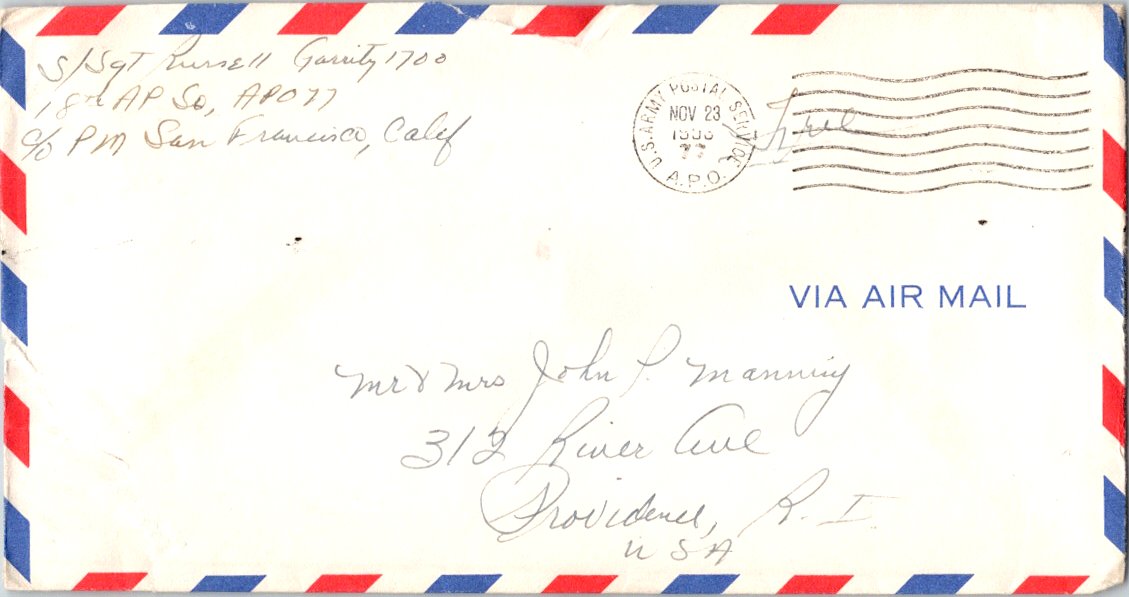 S/Sgt Russell Garrity 1700
18th AP Sq, APO 77
c/o PM San Francisco, Calif
U.S. ARMY POSTAL SERVICE
NOV 23
A.P.O.
Free
VIA AIR MAIL
Mr & Mrs John P. Manning
312 River Ave
Providence, R. I.
USA